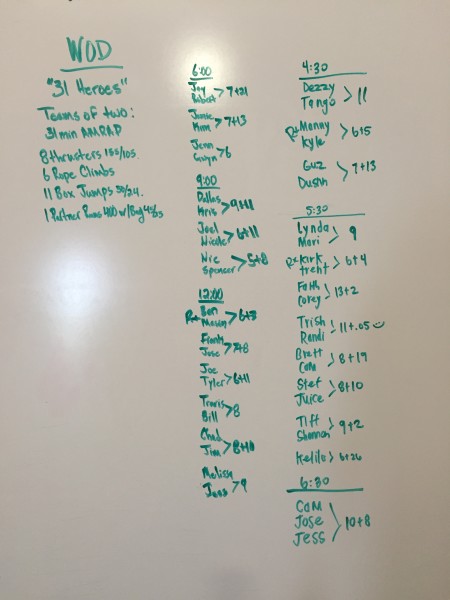 WOD
"31 Heroes"
Teams of two:
31 min AMRAP
8 thrusters 155/105
6 Rope Climbs
11 Box Jumps 30/24
1 Partner Runs 400 w/
6:00
Joy
Robert > 7+21
Jamie
> 7+13
Jenn
Gwyn > 6
9:00
Dallas
Kris > 9+11
Joel
Nicole > 6+11
Nic
Spencer > 5+8
12:00
Rx Ben
> 6+3
Frank
Jose
Joe
Tyler > 6+11
Travis
Bill > 8
Chad
Jim > 8+10
Meliss
Jess > 9
4:30
Dezzy
Tango > 11
Rx Manny
Kyle > 6+5
Guz
Dustin > 7+13
5:30
Lynda
Mari > 9
Rx Kirk
trent > 6+4
Faith
Corey > 13+2
Trish
Randi > 11+.05
Brett
Cam > 8+19
Stef
Juice > 8+10
Tiff
Shannon > 9+2
6+26
6:30
Cam
Jose
Jess > 10+8